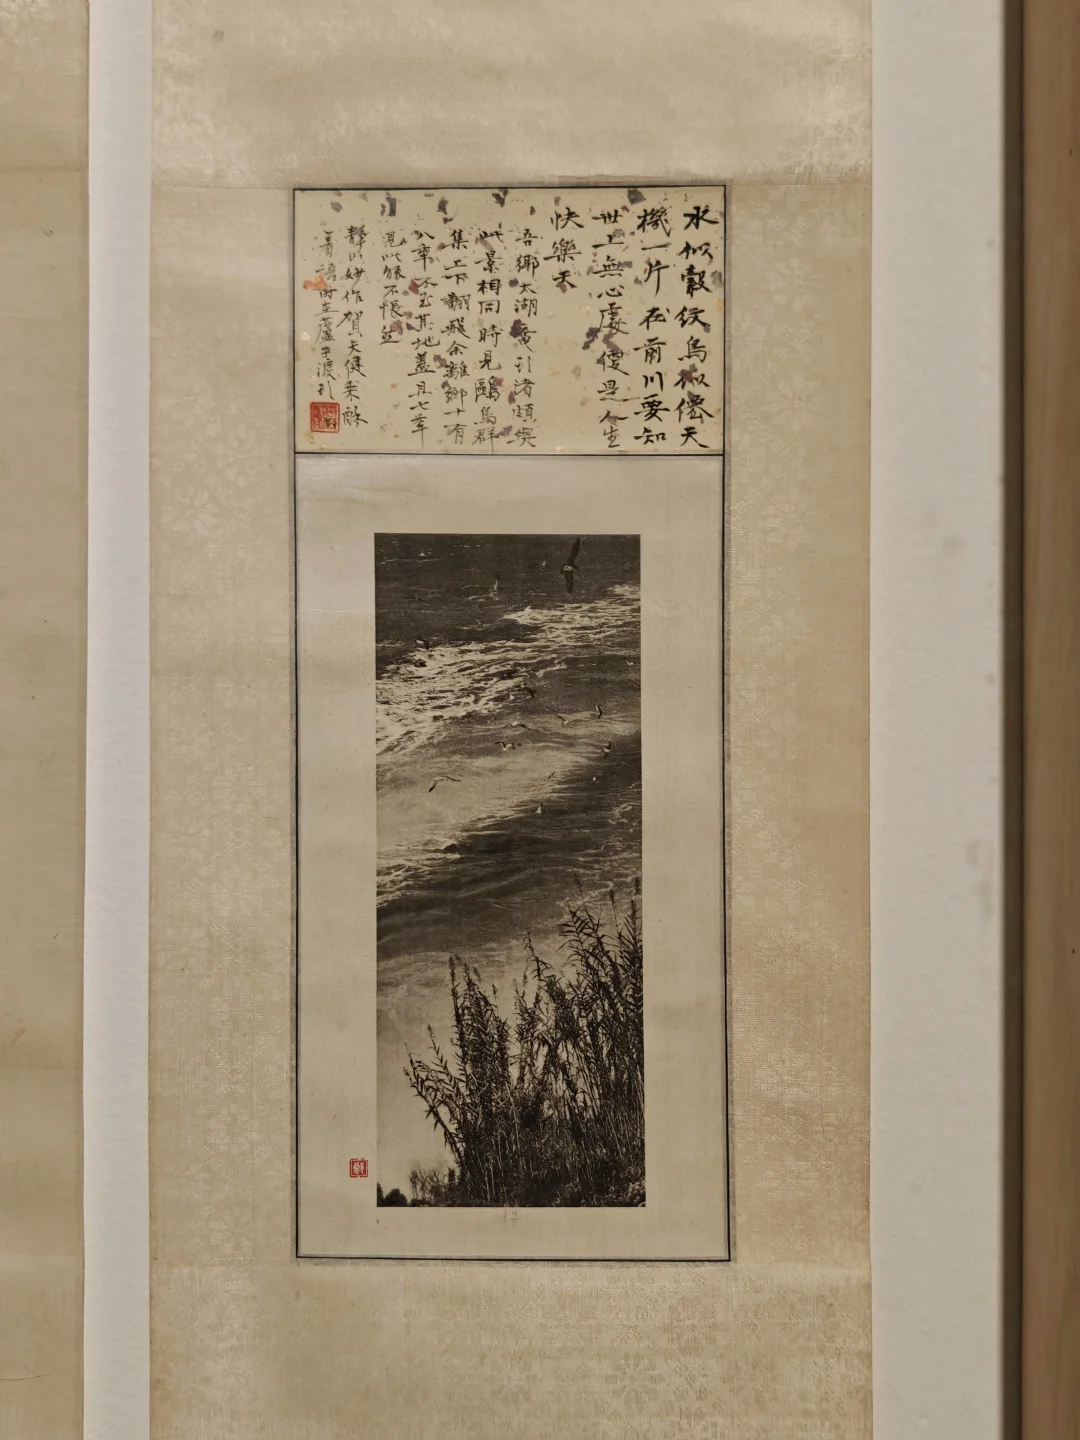 水似縠紋鳥似僊天
機一片在前川要知
世上無心處便是人生
快樂天
吾鄉太湖黿頭渚頗與
此景相同時見鷗鳥群
集上下翻飛余離鄉十有
八年不至其地蓋且七年
見此能不悵然
靜山妙作賀天健桒酥